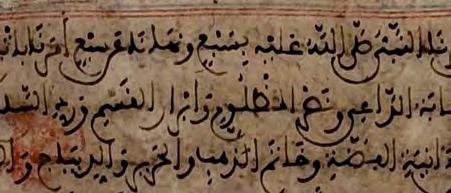 أمرنا النبي صلى الله عليه بسبع ونهانا عن سبع أمرنا
الداعي ونصر المظلوم وابرار القسم ورد
انية الفضة وخاتم الذهب والحرير والديباج